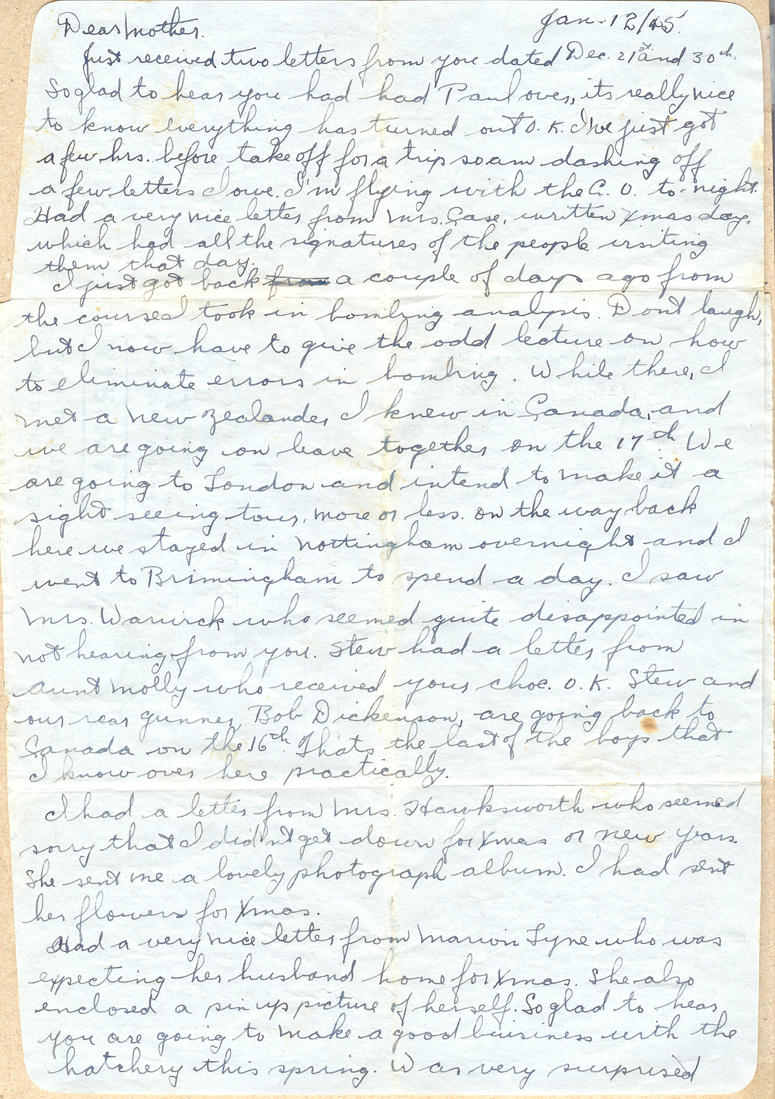 Jan-12/45.
Dear Mother.
Just received two letters from you dated Dec. 21st and 30th.
So glad to hear you had had Paul over, its really nice
to know everything has turned out O.K. I've just got
a few hrs. before take off for a trip so am dashing off
a few letters I owe. I'm flying with the C.O. to-night.
Had a very nice letter from Mrs. Case, written Xmas day,
which had all the signatures of the people visiting
them that day.
I just got back from a couple of days ago from
the course I took in bombing analysis. Don't laugh,
but I now have to give the odd lecture on how
to eliminate errors in bombing. While there, I
met a New Zealander I knew in Canada, and
we are going on leave together on the 17th We
are going to London and intend to make it a
sight seeing tour, more or less. On the way back
here we stayed in Nottingham overnight and I
went to Brimingham to spend a day. I saw
Mrs. Warwick who seemed quite disappointed in
not hearing from you. Stew had a letter from
Aunt Molly who received your choc. O.K. Stew and
our rear gunner, Bob Dickenson, are going back to
Canada on the 16th. Thats the last of the boys that
I know over here practically.
I had a letter from Mrs. Hawksworth who seemed
sorry that I didn't get down for Xmas or New Years.
She sent me a lovely photograph album. I had sent
her flowers for Xmas.
Had a very nice letter from Marion Tyne who was
expecting her husband home for Xmas. She also
enclosed a pin up picture of herself. So glad to hear
you are going to make a good buisness with the
hatchery this spring. Was very surprised